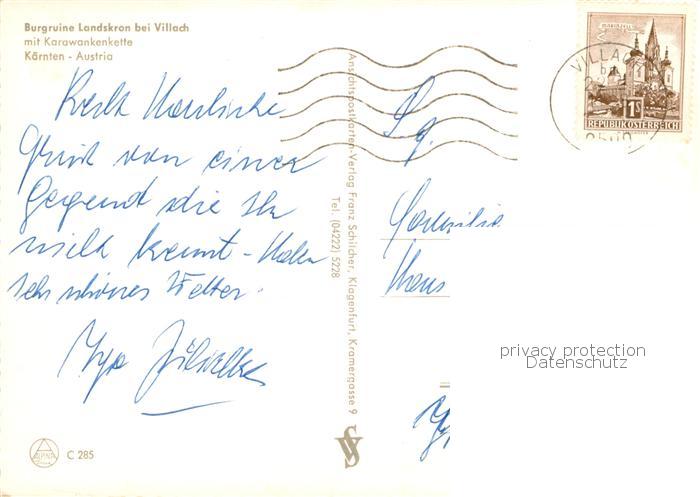 Burgruine Landskron bei Villach
mit Karawankenkette
Kärnten - Austria
Recht Herzliche
Grüße von einer
Gegend die Ihr
nicht kennt - Haben
sehr schönes Wetter.
C 285
Ansichtspostkarten-Verlag Franz Schilcher, Klagenfurt, Kramergasse 9
Tel. (04222) 5228
Familie
Hans
MARIAZELL
1S
REPUBLIK ÖSTERREICH
VILLACH
privacy protection
Datenschutz
ALPINA